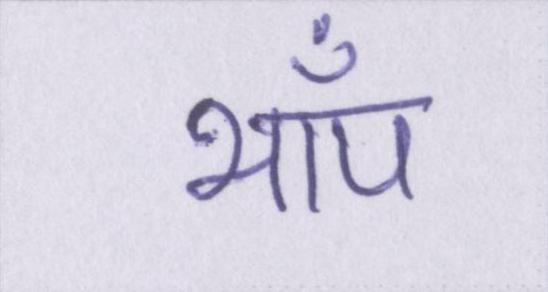 भाँप